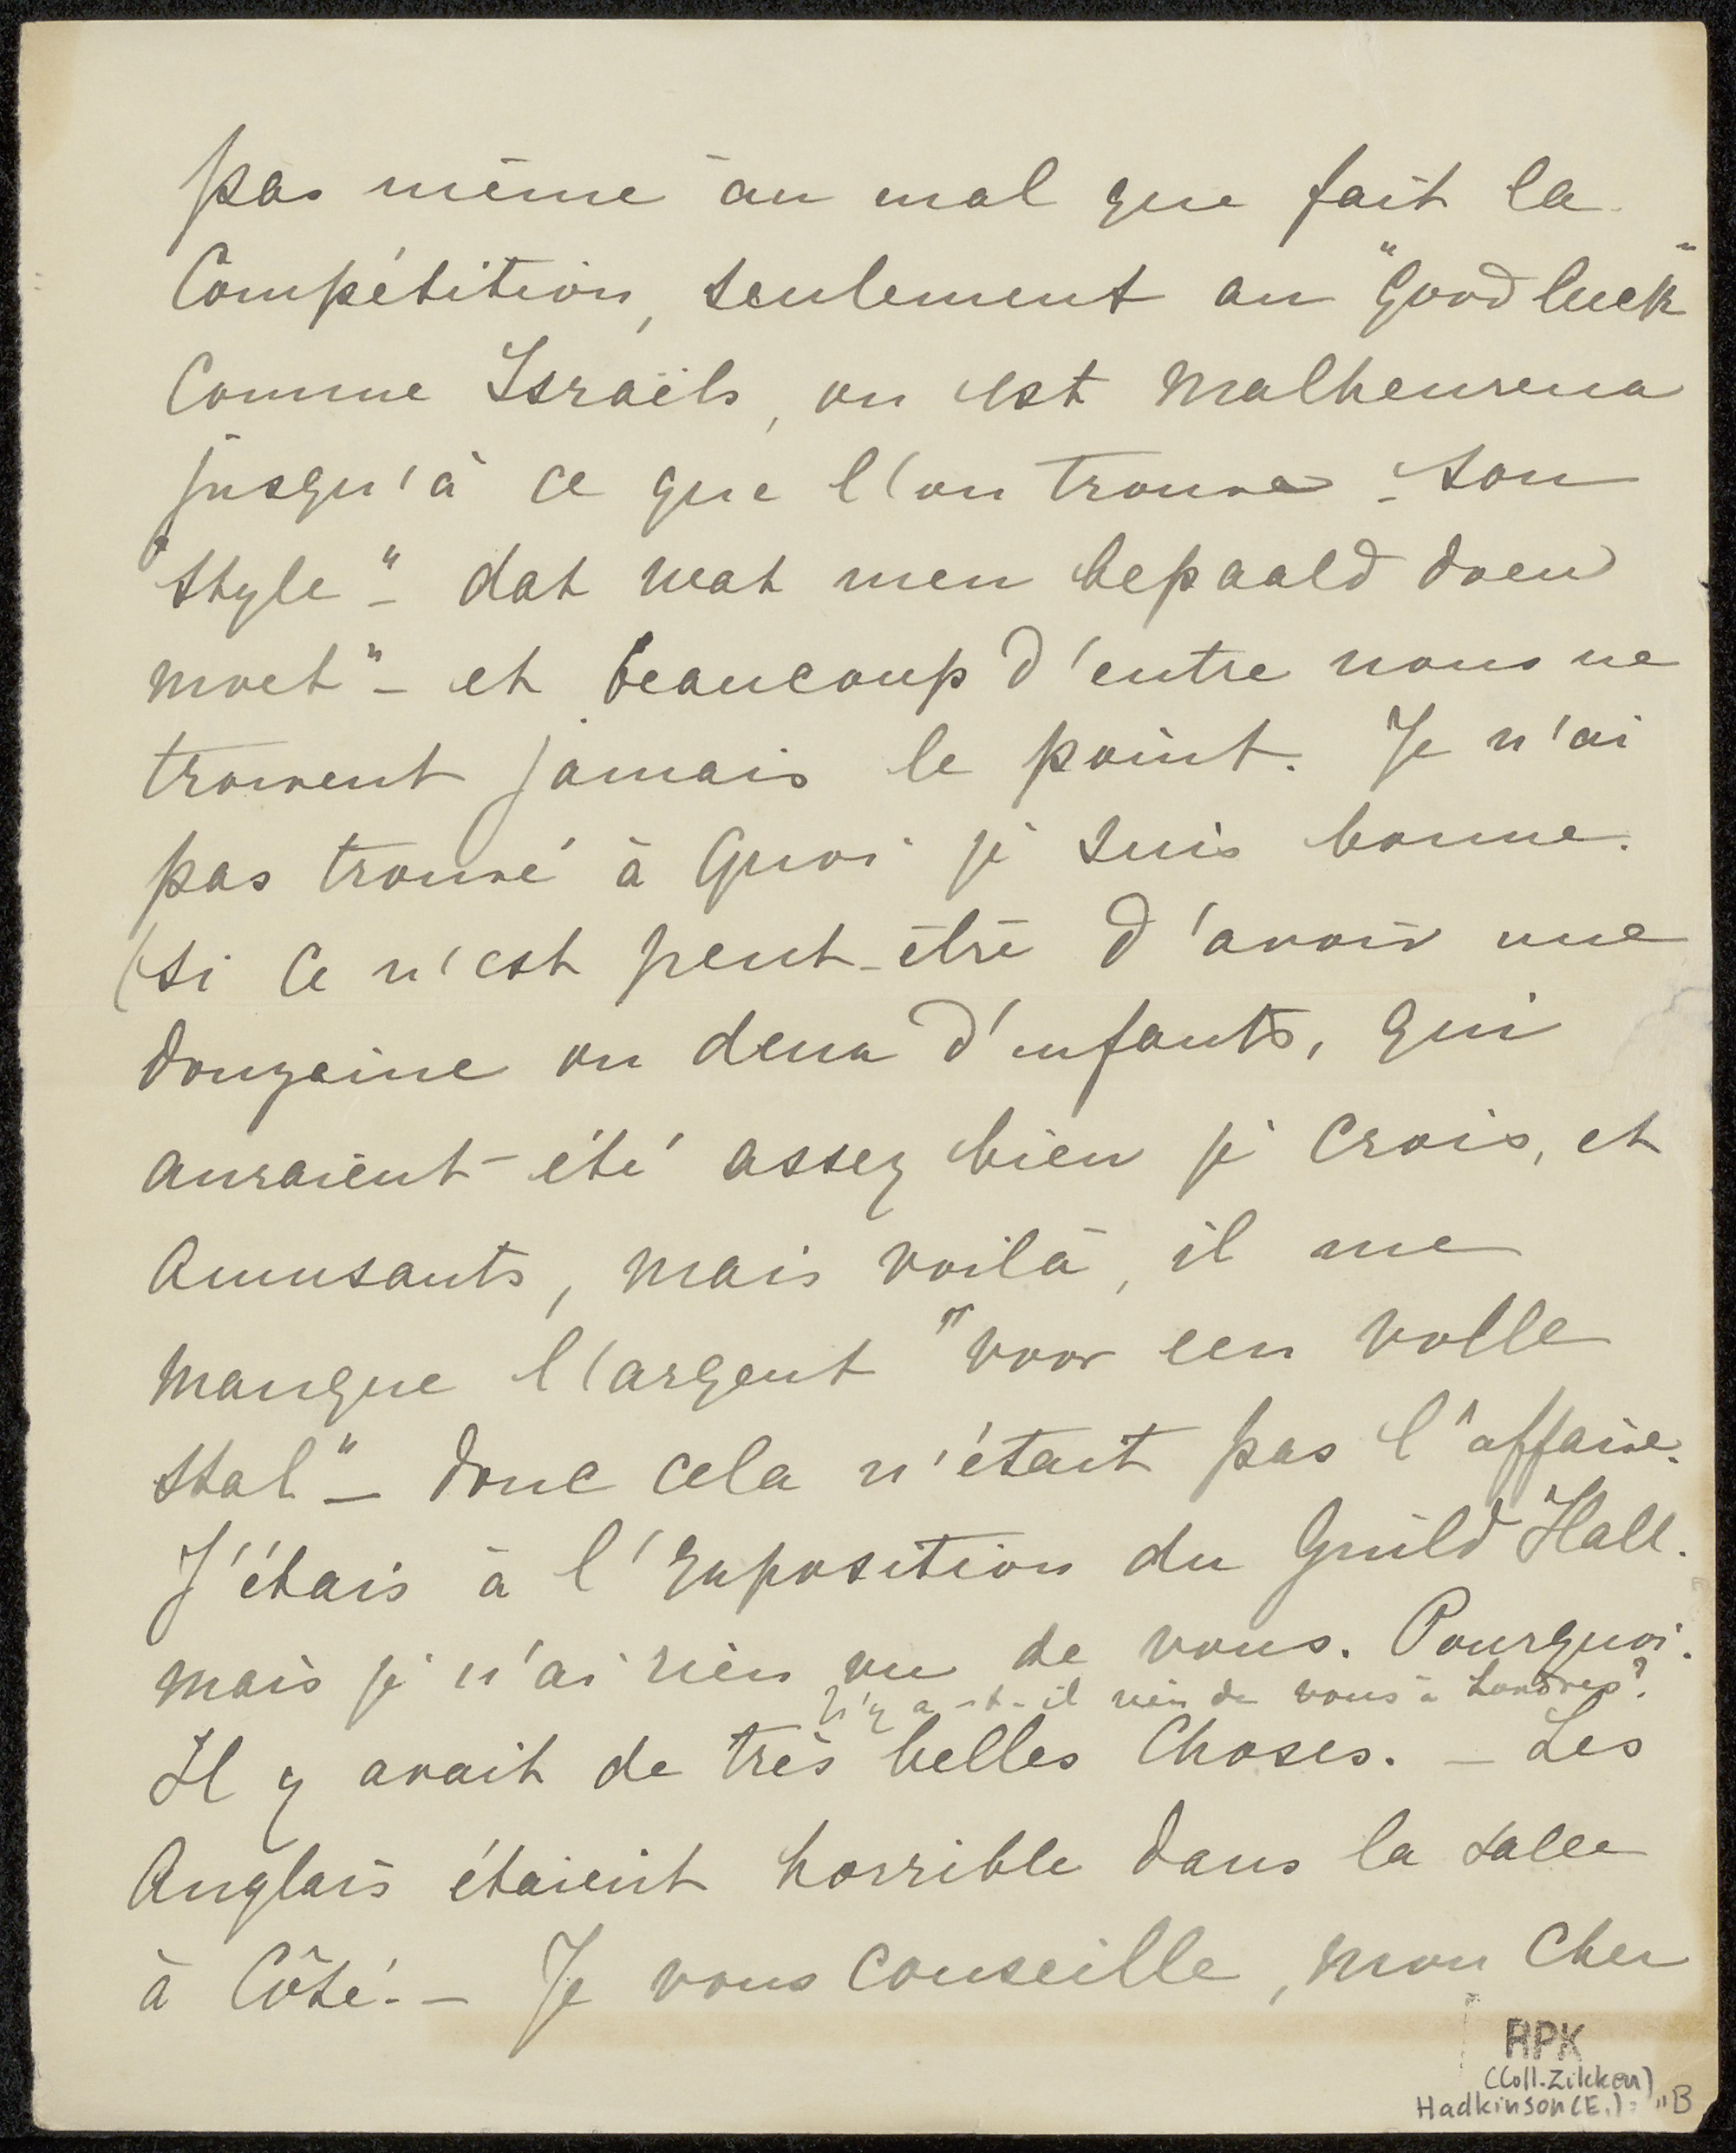 pas même au mal que fait la
Compétition, seulement au "Good luck"
Comme Israëls, on est malheureux
jusqu'à ce que l'on trouve - son
"style" - dat wat men bepaald doen
moet" - et beaucoup d'entre nous ne
trouvent jamais le point. Je n'ai
pas trouvé à quoi je suis bonne.
(si ce n'est peut-être d'avoir une
douzaine ou deux d'enfants, qui
auraient-été assez bien je crois, et
amusants, mais voilà, il me
manque l'argent "voor een volle
stal" - donc cela n'était pas l'affaire.
J'étais à l'Exposition du Guild Hall.
mais je n'ai rien vu de vous. Pourquoi.
N'y a-t-il rien de vous à Londres?
Il y avait de très belles choses. - Les
Anglais étaient horrible dans la salle
à côté. - Je vous conseille, mon cher
RPK
(Coll. Zilcken)
Hadkinson (E.) = "B